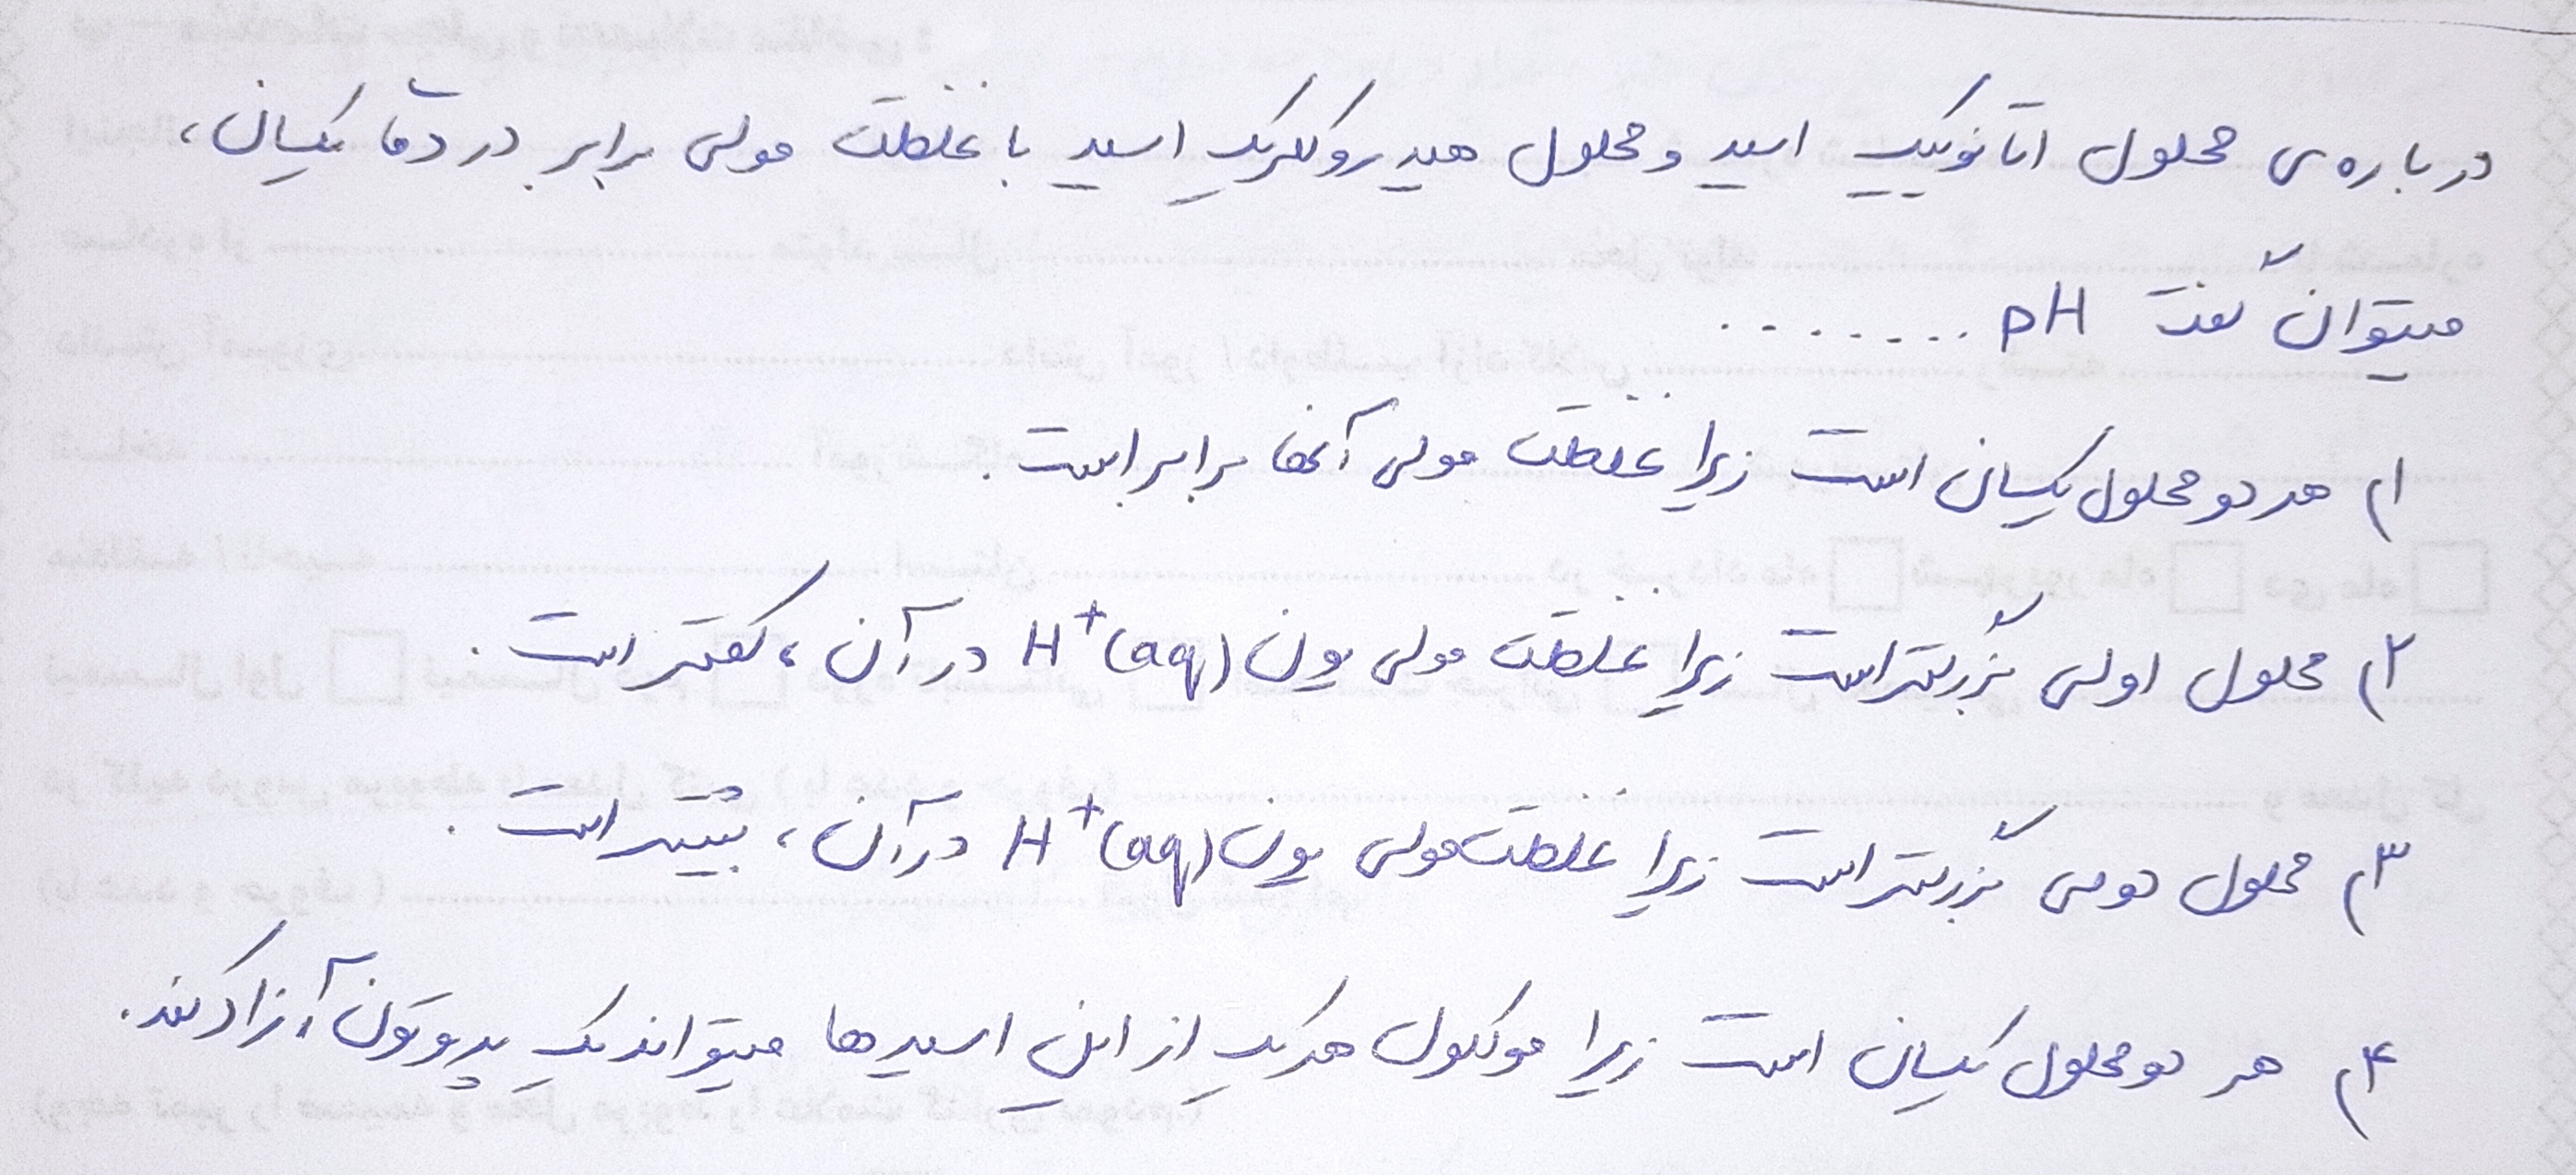 درباره‌ی محلول اتانوییک اسید و محلول هیدروکلریک اسید با غلظت مولی برابر در دمای یکسان،
میتوان گفت pH ........
۱) هر دو محلول یکسان است زیرا غلظت مولی آنها برابر است.
۲) محلول اولی بزرگتر است زیرا غلظت مولی یون H⁺(aq) در آن، کمتر است.
۳) محلول دومی بزرگتر است زیرا غلظت مولی یون H⁺(aq) در آن، بیشتر است.
۴) هر دو محلول یکسان است زیرا مولکول هر یک از این اسیدها میتواند یک پروتون آزاد کند.